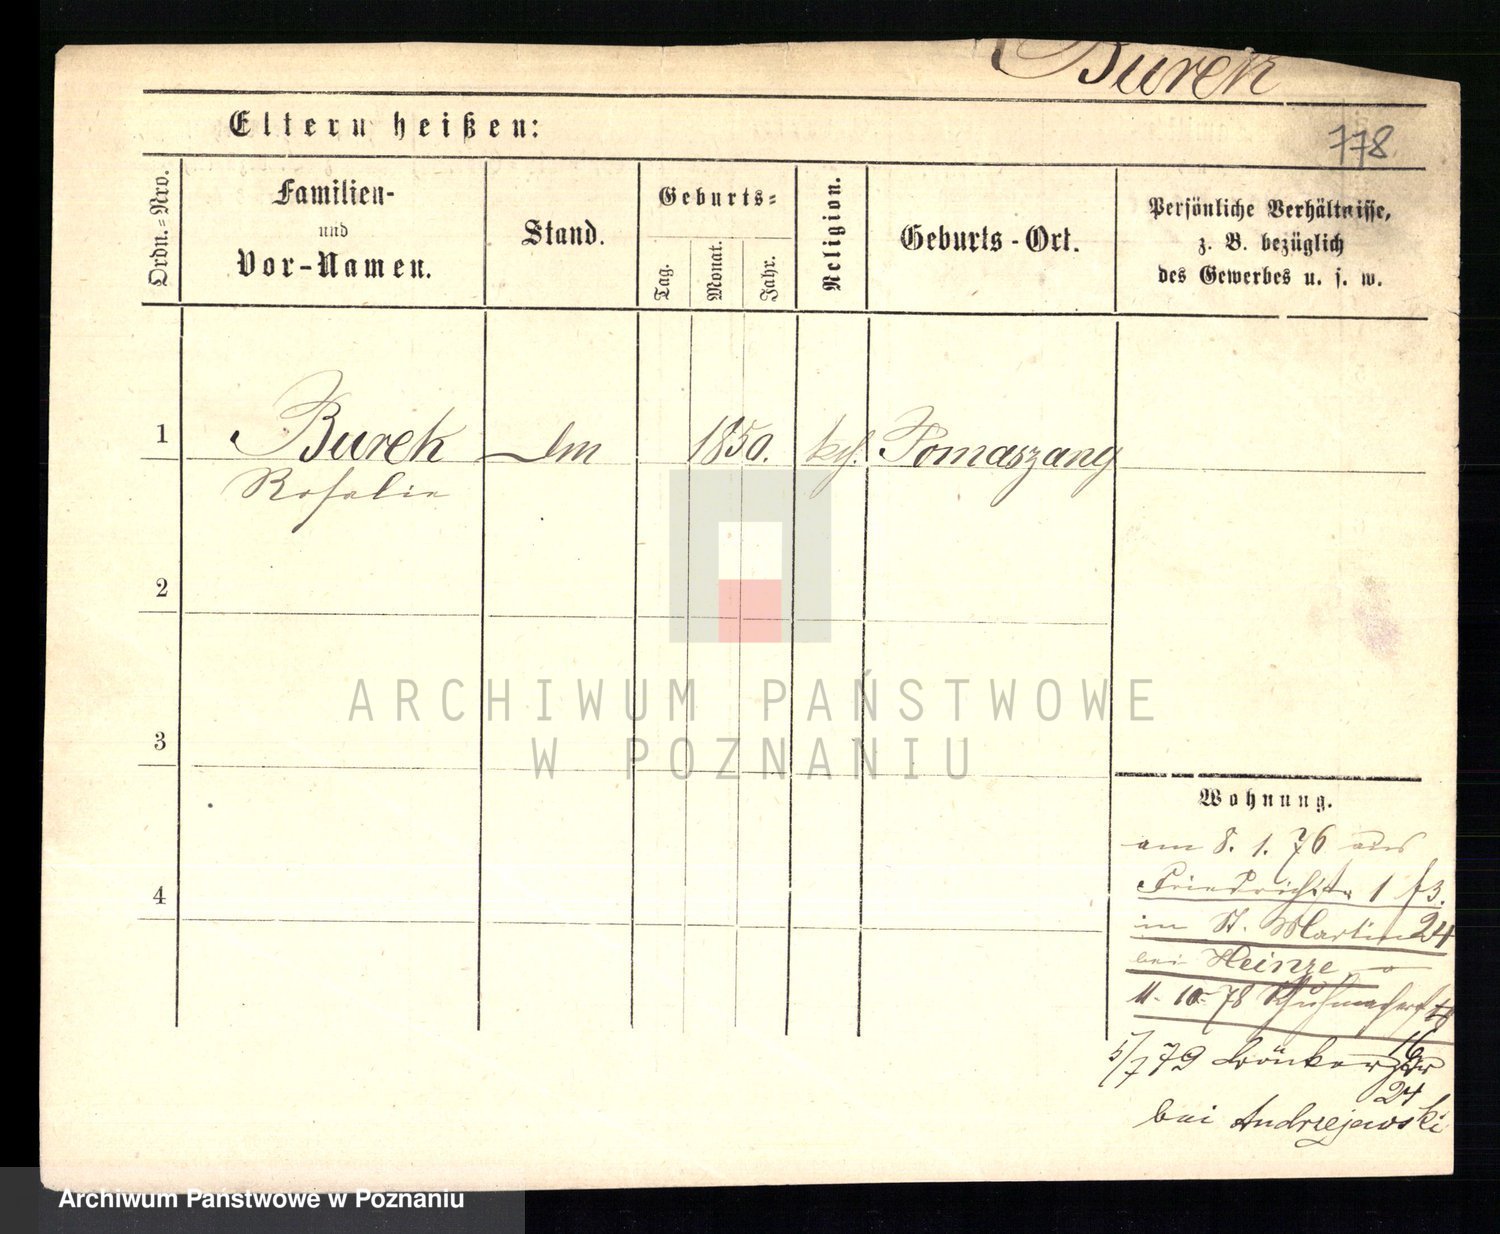 Burek
Eltern heißen:
778
Ordn.=Nro.
Familien-
und
Vor-Namen.
Stand.
Geburts=
Tag.
Monat.
Jahr.
Religion.
Geburts-Ort.
Persönliche Verhältnisse,
z. B. bezüglich
des Gewerbes u. s. w.
1
Burek
Rosalie
1850.
2
3
4
ARCHIWUM PAŃSTWOWE
W POZNANIU
Wohnung.
am 8. 1. 76 aus
Friedrichstr 1
in St. Martin 24
bei Heinze
11. 10. 78
5/7 79
16
24
bei Andrzejewski
Archiwum Państwowe w Poznaniu